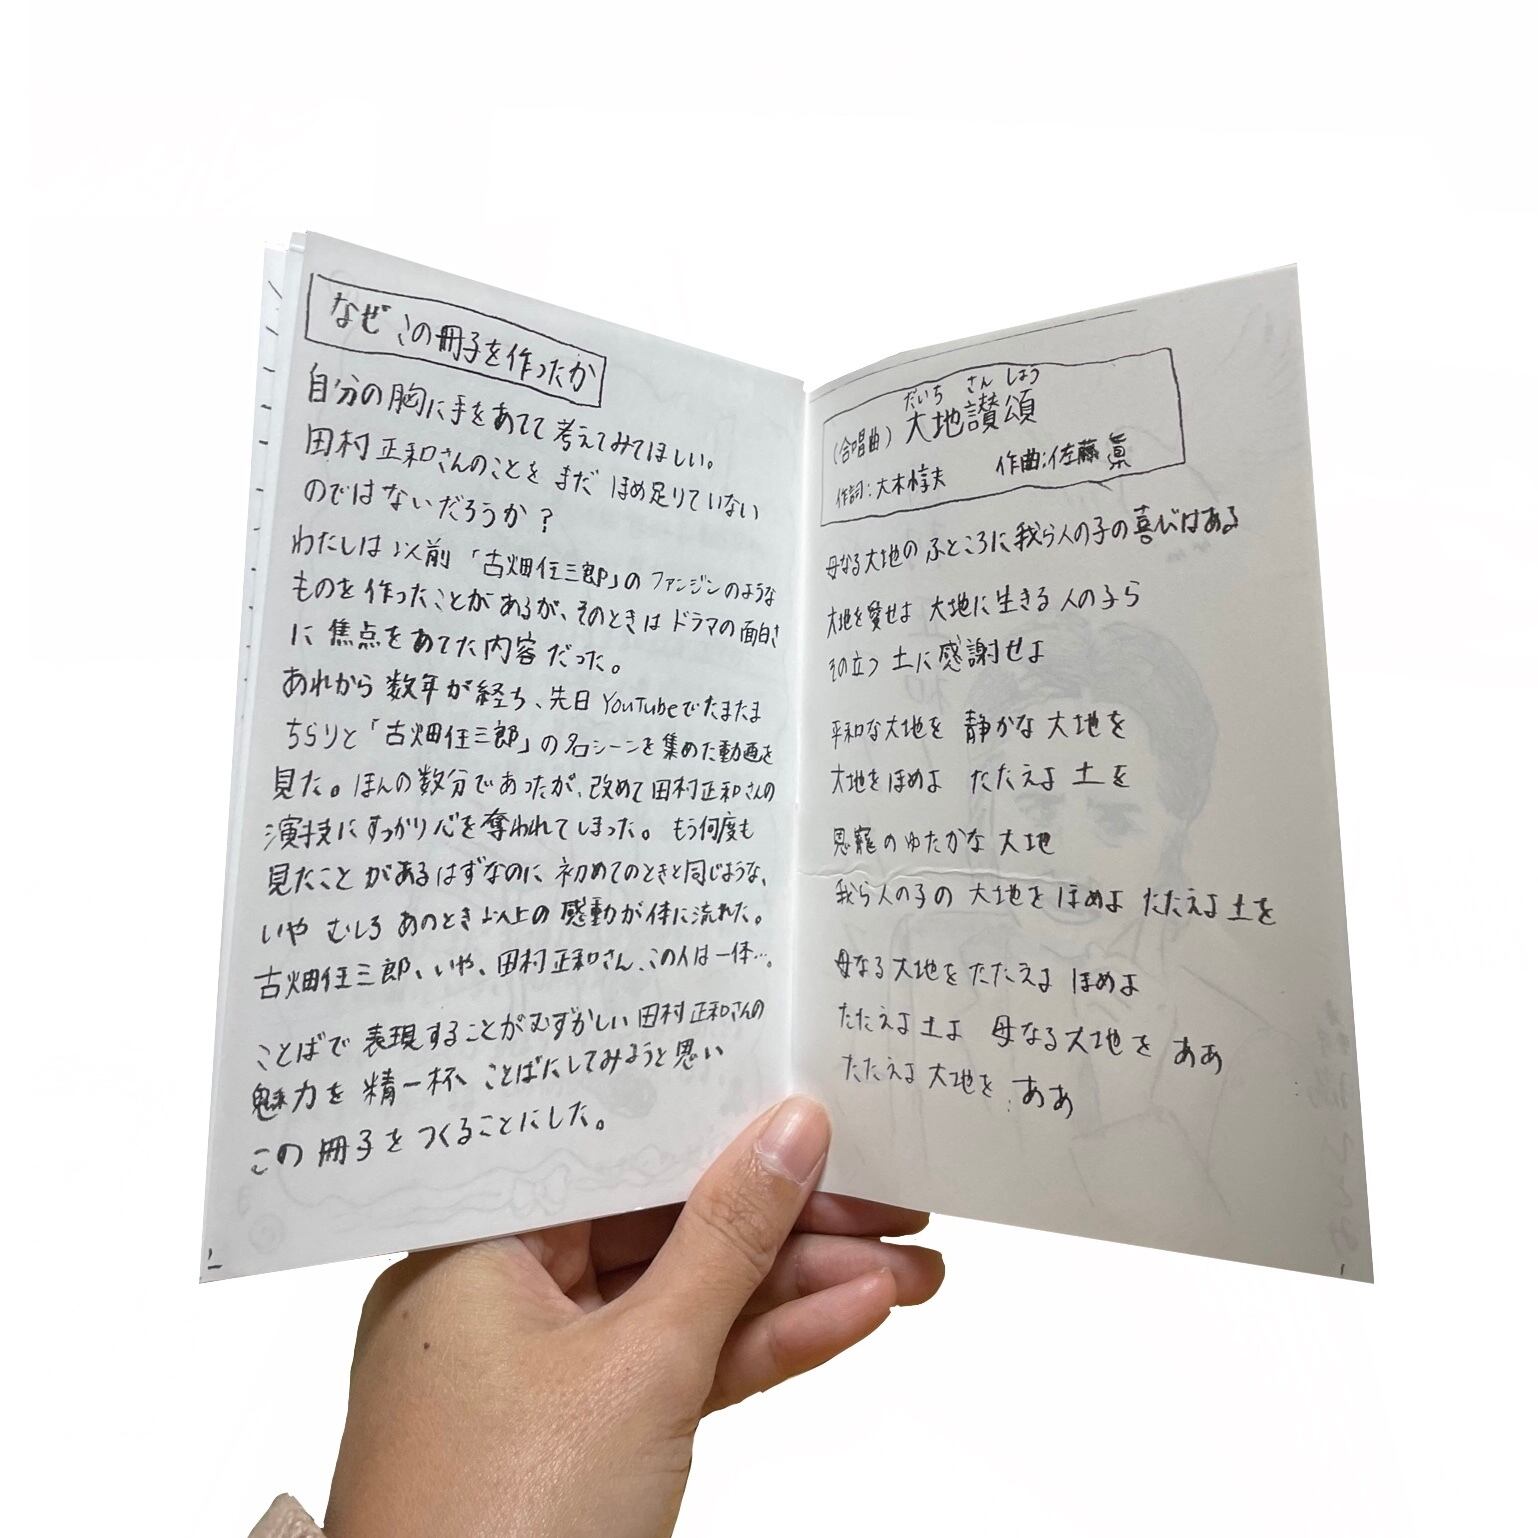 なぜこの冊子を作ったか
自分の胸に手をあてて考えてみてほしい。
田村正和さんのことをまだほめ足りていない
のではないだろうか？
わたしは以前「古畑任三郎」のファンジンのような
ものを作ったことがあるが、そのときはドラマの面白さ
に焦点をあてた内容だった。
あれから数年が経ち、先日YouTubeでたまたま
ちらりと「古畑任三郎」の名シーンを集めた動画を
見た。ほんの数分であったが、改めて田村正和さんの
演技にすっかり心を奪われてしまった。もう何度も
見たことがあるはずなのに初めてのときと同じような、
いやむしろあのとき以上の感動が体に流れた。
古畑任三郎、いや、田村正和さん、この人は一体…。
ことばで表現することがむずかしい田村正和さんの
魅力を精一杯ことばにしてみようと思い
この冊子をつくることにした。
だいち さんしょう
（合唱曲）大地讃頌
作詞：大木惇夫 作曲：佐藤眞
母なる大地のふところに我ら人の子の喜びはある
大地を愛せよ 大地に生きる人の子ら
その立つ土に感謝せよ
平和な大地を 静かな大地を
大地をほめよ たたえよ土を
恩寵のゆたかな大地
我ら人の子の 大地をほめよ たたえよ土を
母なる大地を たたえよ ほめよ
たたえよ土よ 母なる大地を ああ
たたえよ大地を ああ